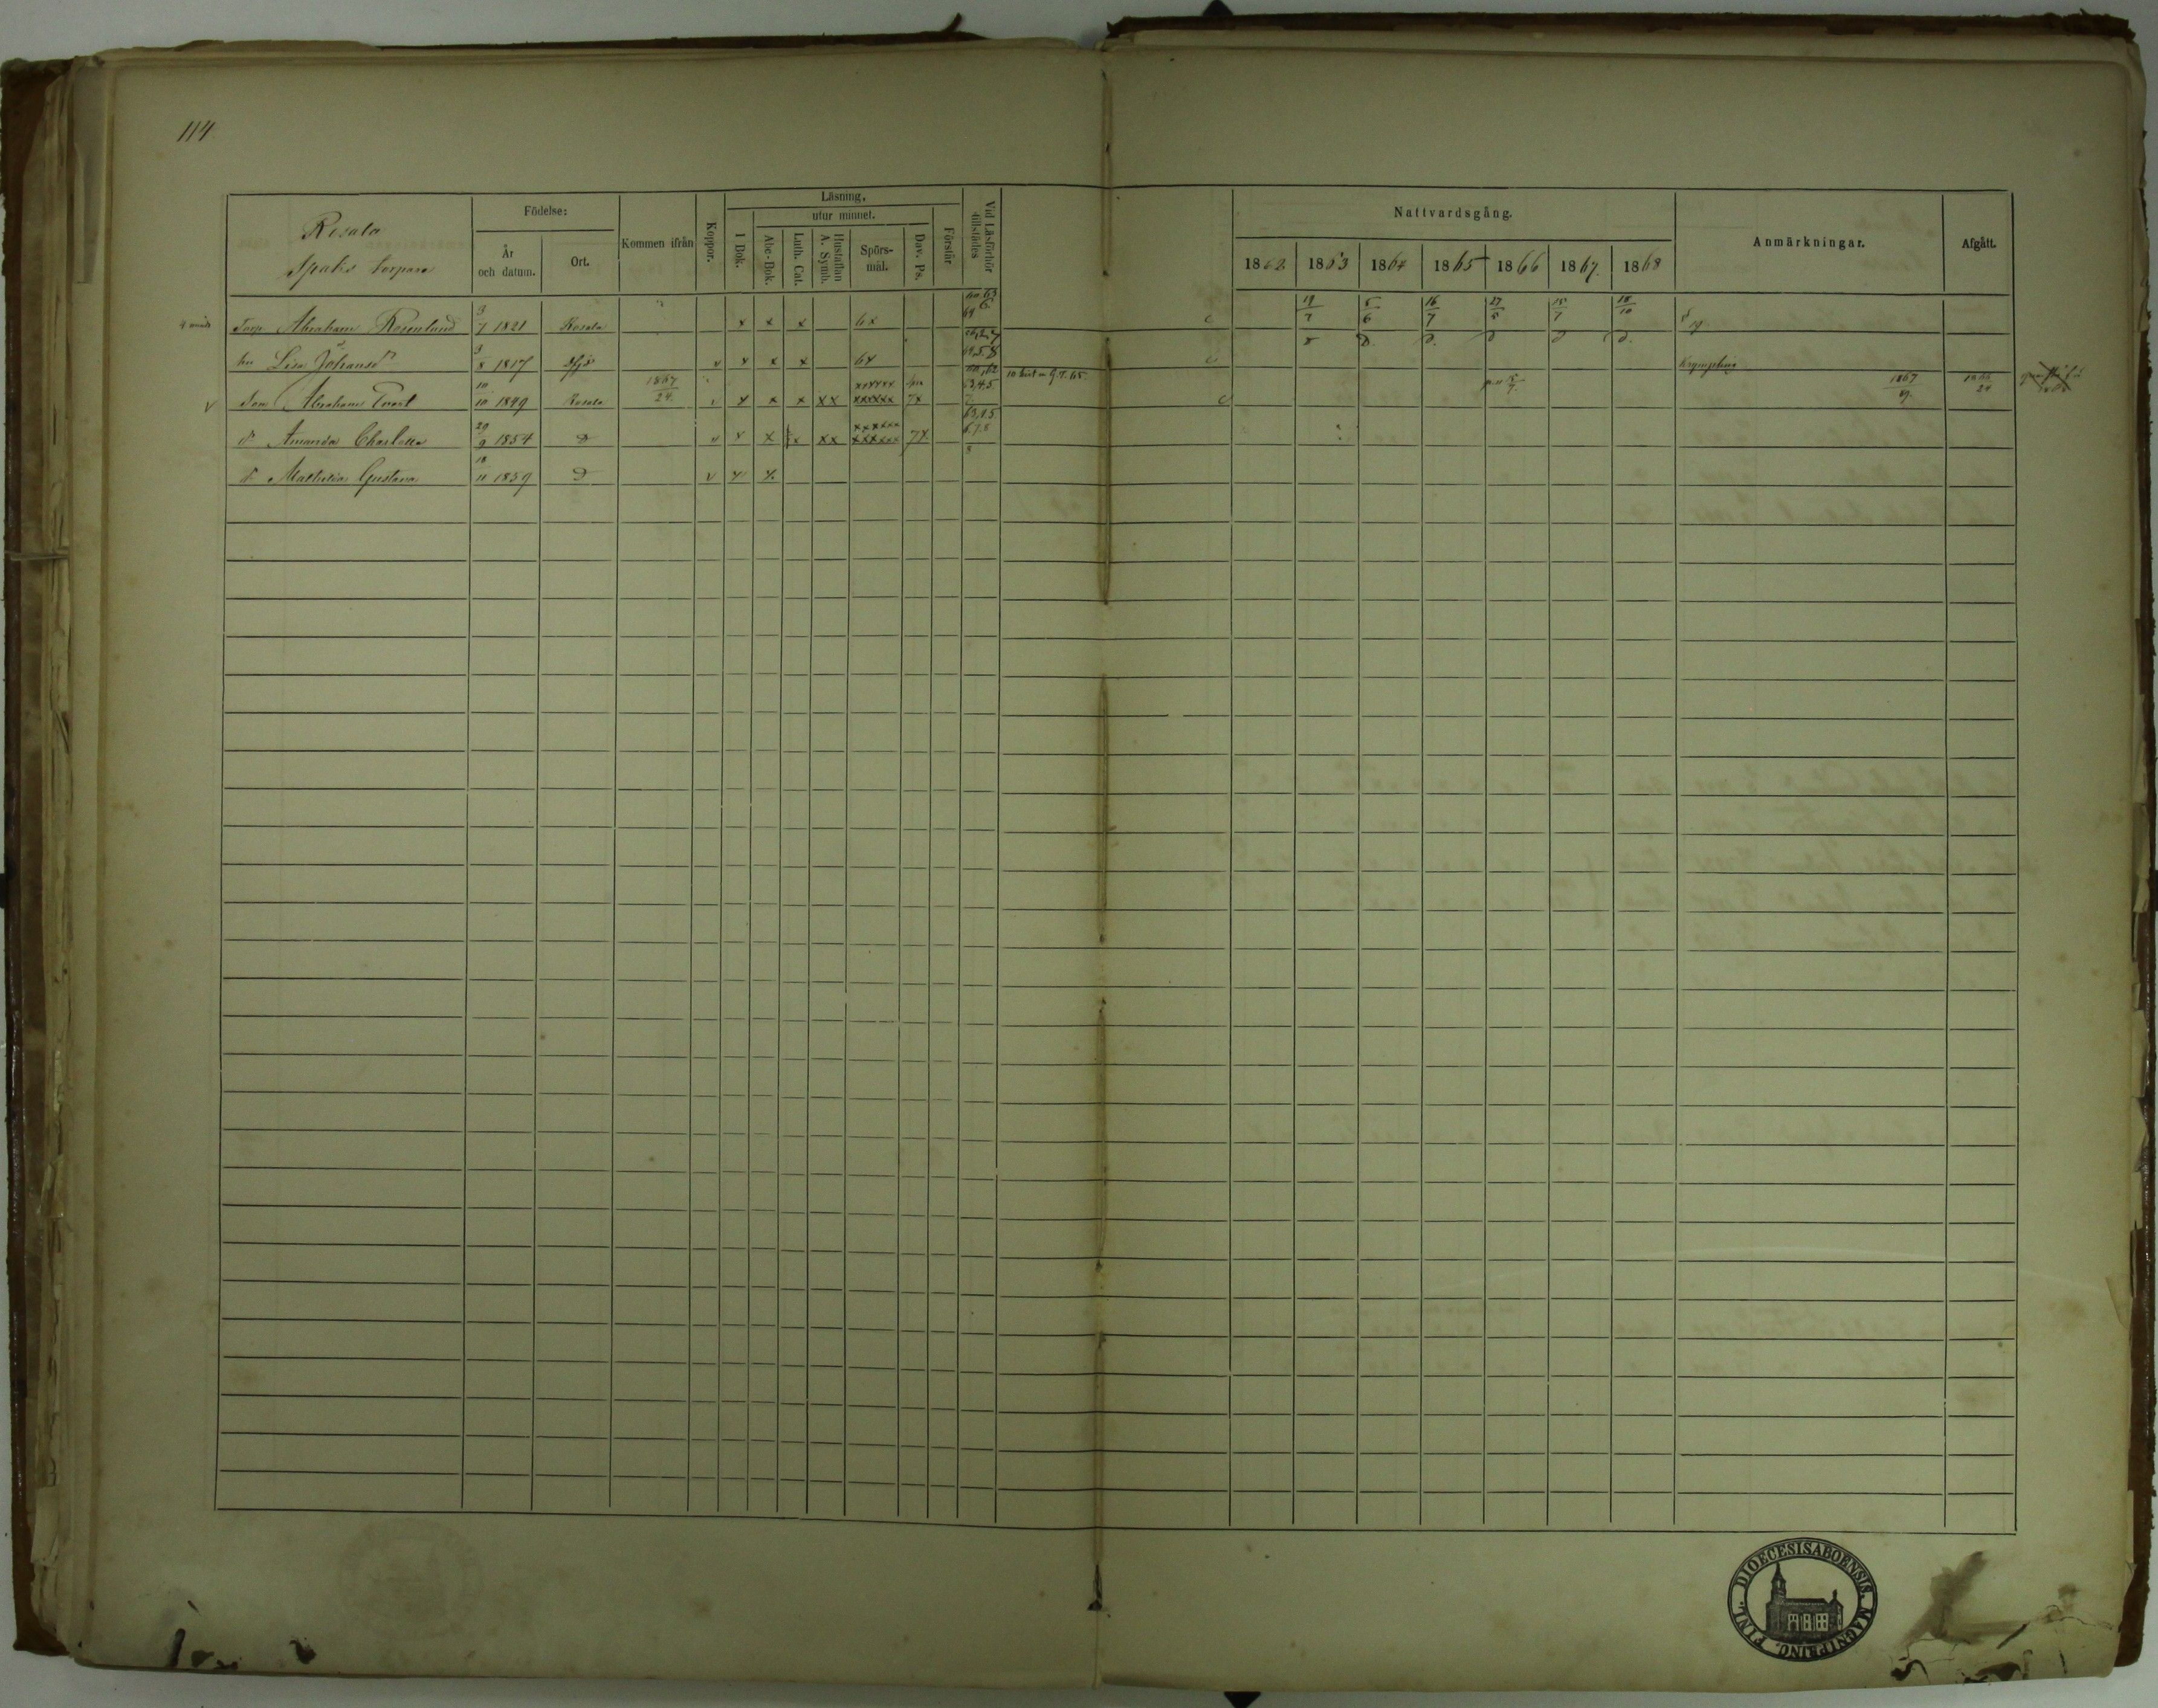 114
Rosala
Spaks torpare
Födelse:
År
och datum.
Ort.
Kommen ifrån
Koppor.
Läsning.
I Bok.
utur minnet.
Abc-Bok.
Luth. Cat.
Hustaflan
A. Symb.
Spörs-
mål.
Dav. Ps.
Förstår
Vid Läsförhör
tillstädes
Nattvardsgång.
1862 1863 1864 1865 1866 1867. 1868
Anmärkningar.
Afgått.
Torp. Abraham Rosenlund 3/7 1821 Rosala x x x 6x 19/7 5/6 16/7 27/5 15/7 18/10
hu Lisa Johansd 3/8 1817 v x x x 6x Krympling
Son Abraham Evert 10/10 1849 Rosala 1867/24 v x x x xx xxxxxx xxxxxx 7x 1867
d. Amanda Charlotta 29/9 1854 D v x x x xx xxxxxx xxxxxx 7x
d. Mathilda Gustava 18/11 1859 D v x x
DIOECESIS ABOENSIS. MAGNI PRINC. FINL.